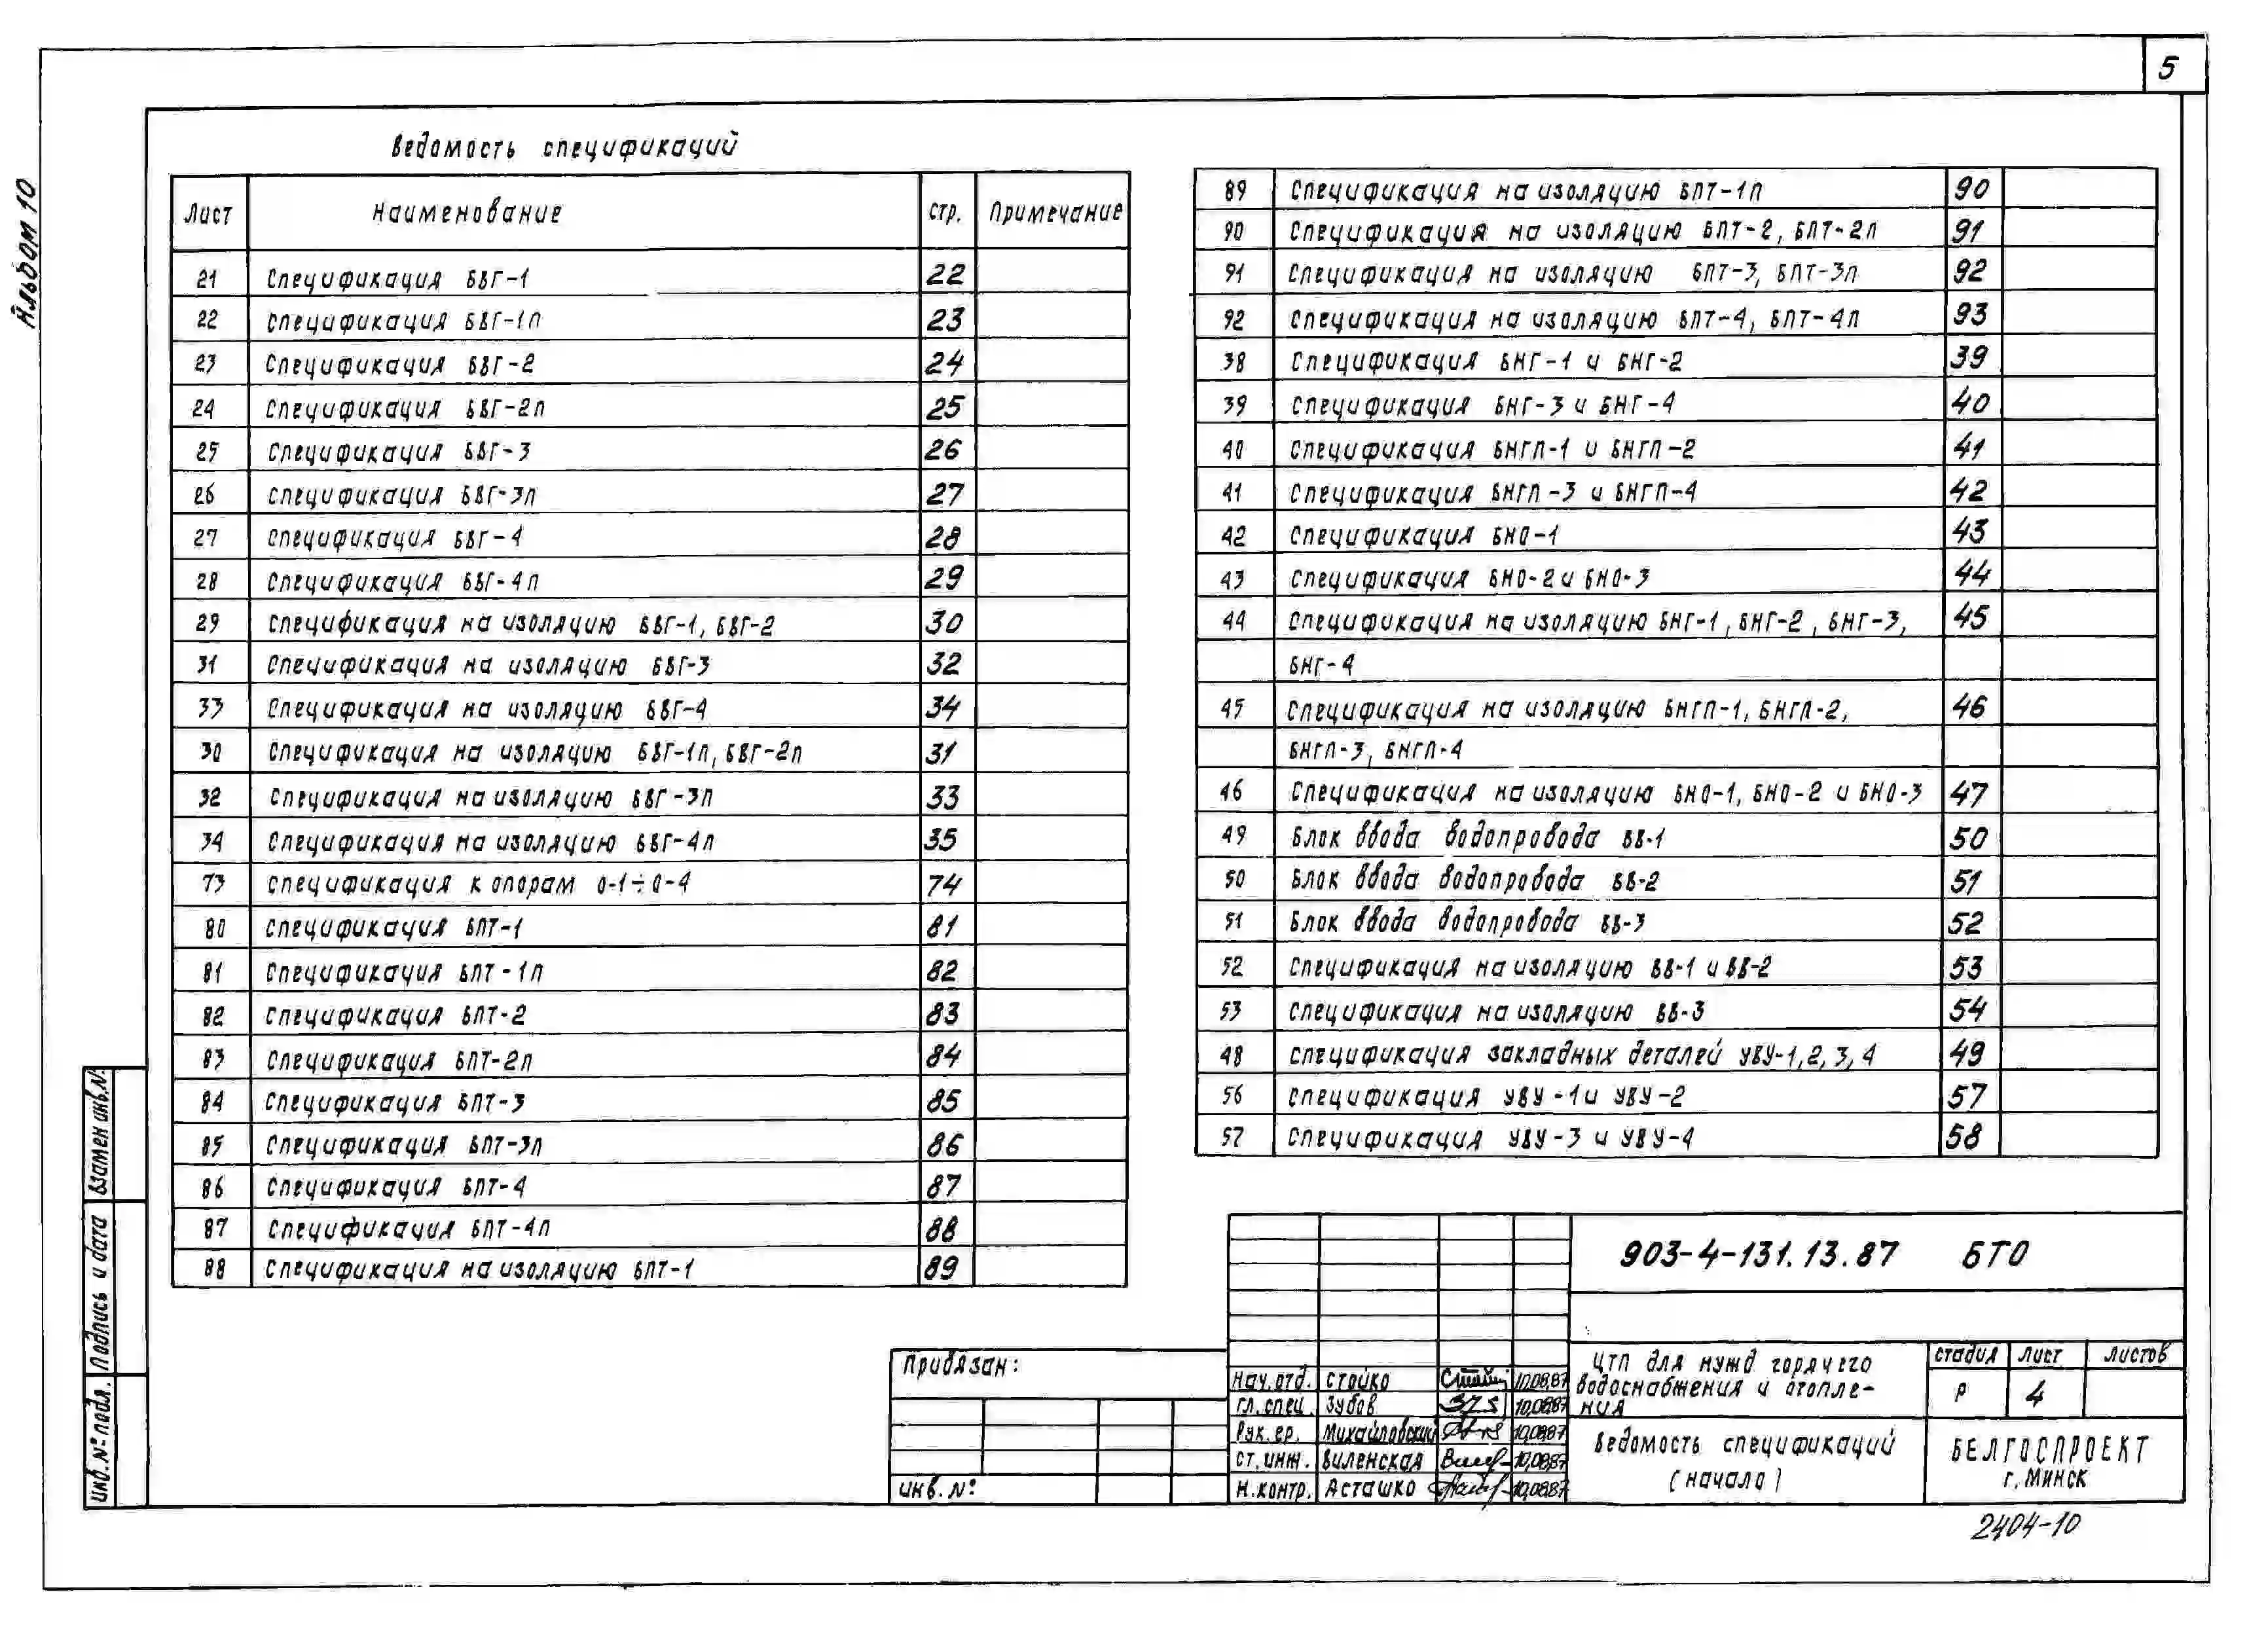 5
Альбом 10
Ведомость спецификаций
Лист Наименование стр. Примечание
21 Спецификация БВГ-1 22
22 Спецификация БВГ-1п 23
23 Спецификация БВГ-2 24
24 Спецификация БВГ-2п 25
25 Спецификация БВГ-3 26
26 Спецификация БВГ-3п 27
27 Спецификация БВГ-4 28
28 Спецификация БВГ-4п 29
29 Спецификация на изоляцию БВГ-1, БВГ-2 30
31 Спецификация на изоляцию БВГ-3 32
33 Спецификация на изоляцию БВГ-4 34
30 Спецификация на изоляцию БВГ-1п, БВГ-2п 31
32 Спецификация на изоляцию БВГ-3п 33
34 Спецификация на изоляцию БВГ-4п 35
73 Спецификация к опорам О-1÷О-4 74
80 Спецификация БПТ-1 81
81 Спецификация БПТ-1п 82
82 Спецификация БПТ-2 83
83 Спецификация БПТ-2п 84
84 Спецификация БПТ-3 85
85 Спецификация БПТ-3п 86
86 Спецификация БПТ-4 87
87 Спецификация БПТ-4п 88
88 Спецификация на изоляцию БПТ-1 89
89 Спецификация на изоляцию БПТ-1п 90
90 Спецификация на изоляцию БПТ-2, БПТ-2п 91
91 Спецификация на изоляцию БПТ-3, БПТ-3п 92
92 Спецификация на изоляцию БПТ-4, БПТ-4п 93
38 Спецификация БНГ-1 и БНГ-2 39
39 Спецификация БНГ-3 и БНГ-4 40
40 Спецификация БНГП-1 и БНГП-2 41
41 Спецификация БНГП-3 и БНГП-4 42
42 Спецификация БНО-1 43
43 Спецификация БНО-2 и БНО-3 44
44 Спецификация на изоляцию БНГ-1, БНГ-2, БНГ-3, 45
БНГ-4
45 Спецификация на изоляцию БНГП-1, БНГП-2, 46
БНГП-3, БНГП-4
46 Спецификация на изоляцию БНО-1, БНО-2 и БНО-3 47
49 Блок ввода водопровода ВВ-1 50
50 Блок ввода водопровода ВВ-2 51
51 Блок ввода водопровода ВВ-3 52
52 Спецификация на изоляцию ВВ-1 и ВВ-2 53
53 Спецификация на изоляцию ВВ-3 54
48 Спецификация закладных деталей УВУ-1,2,3,4 49
56 Спецификация УВУ-1 и УВУ-2 57
57 Спецификация УВУ-3 и УВУ-4 58
Взамен инв.N:
Подпись и дата
Инв.№ подл.
Привязан:
Инв. №
903-4-131.13.87 БТО
Нач.отд. Стойко 10.08.87
Гл.спец. Зубов 10.08.87
Рук.гр. Михайловский 10.08.87
Ст.инж. Виленская 10.08.87
Н.контр. Асташко 10.08.87
ЦТП для нужд горячего
водоснабжения и отопле-
ния
Стадия Лист Листов
Р 4
Ведомость спецификаций
(начало)
БЕЛГОСПРОЕКТ
г. Минск
2404-10